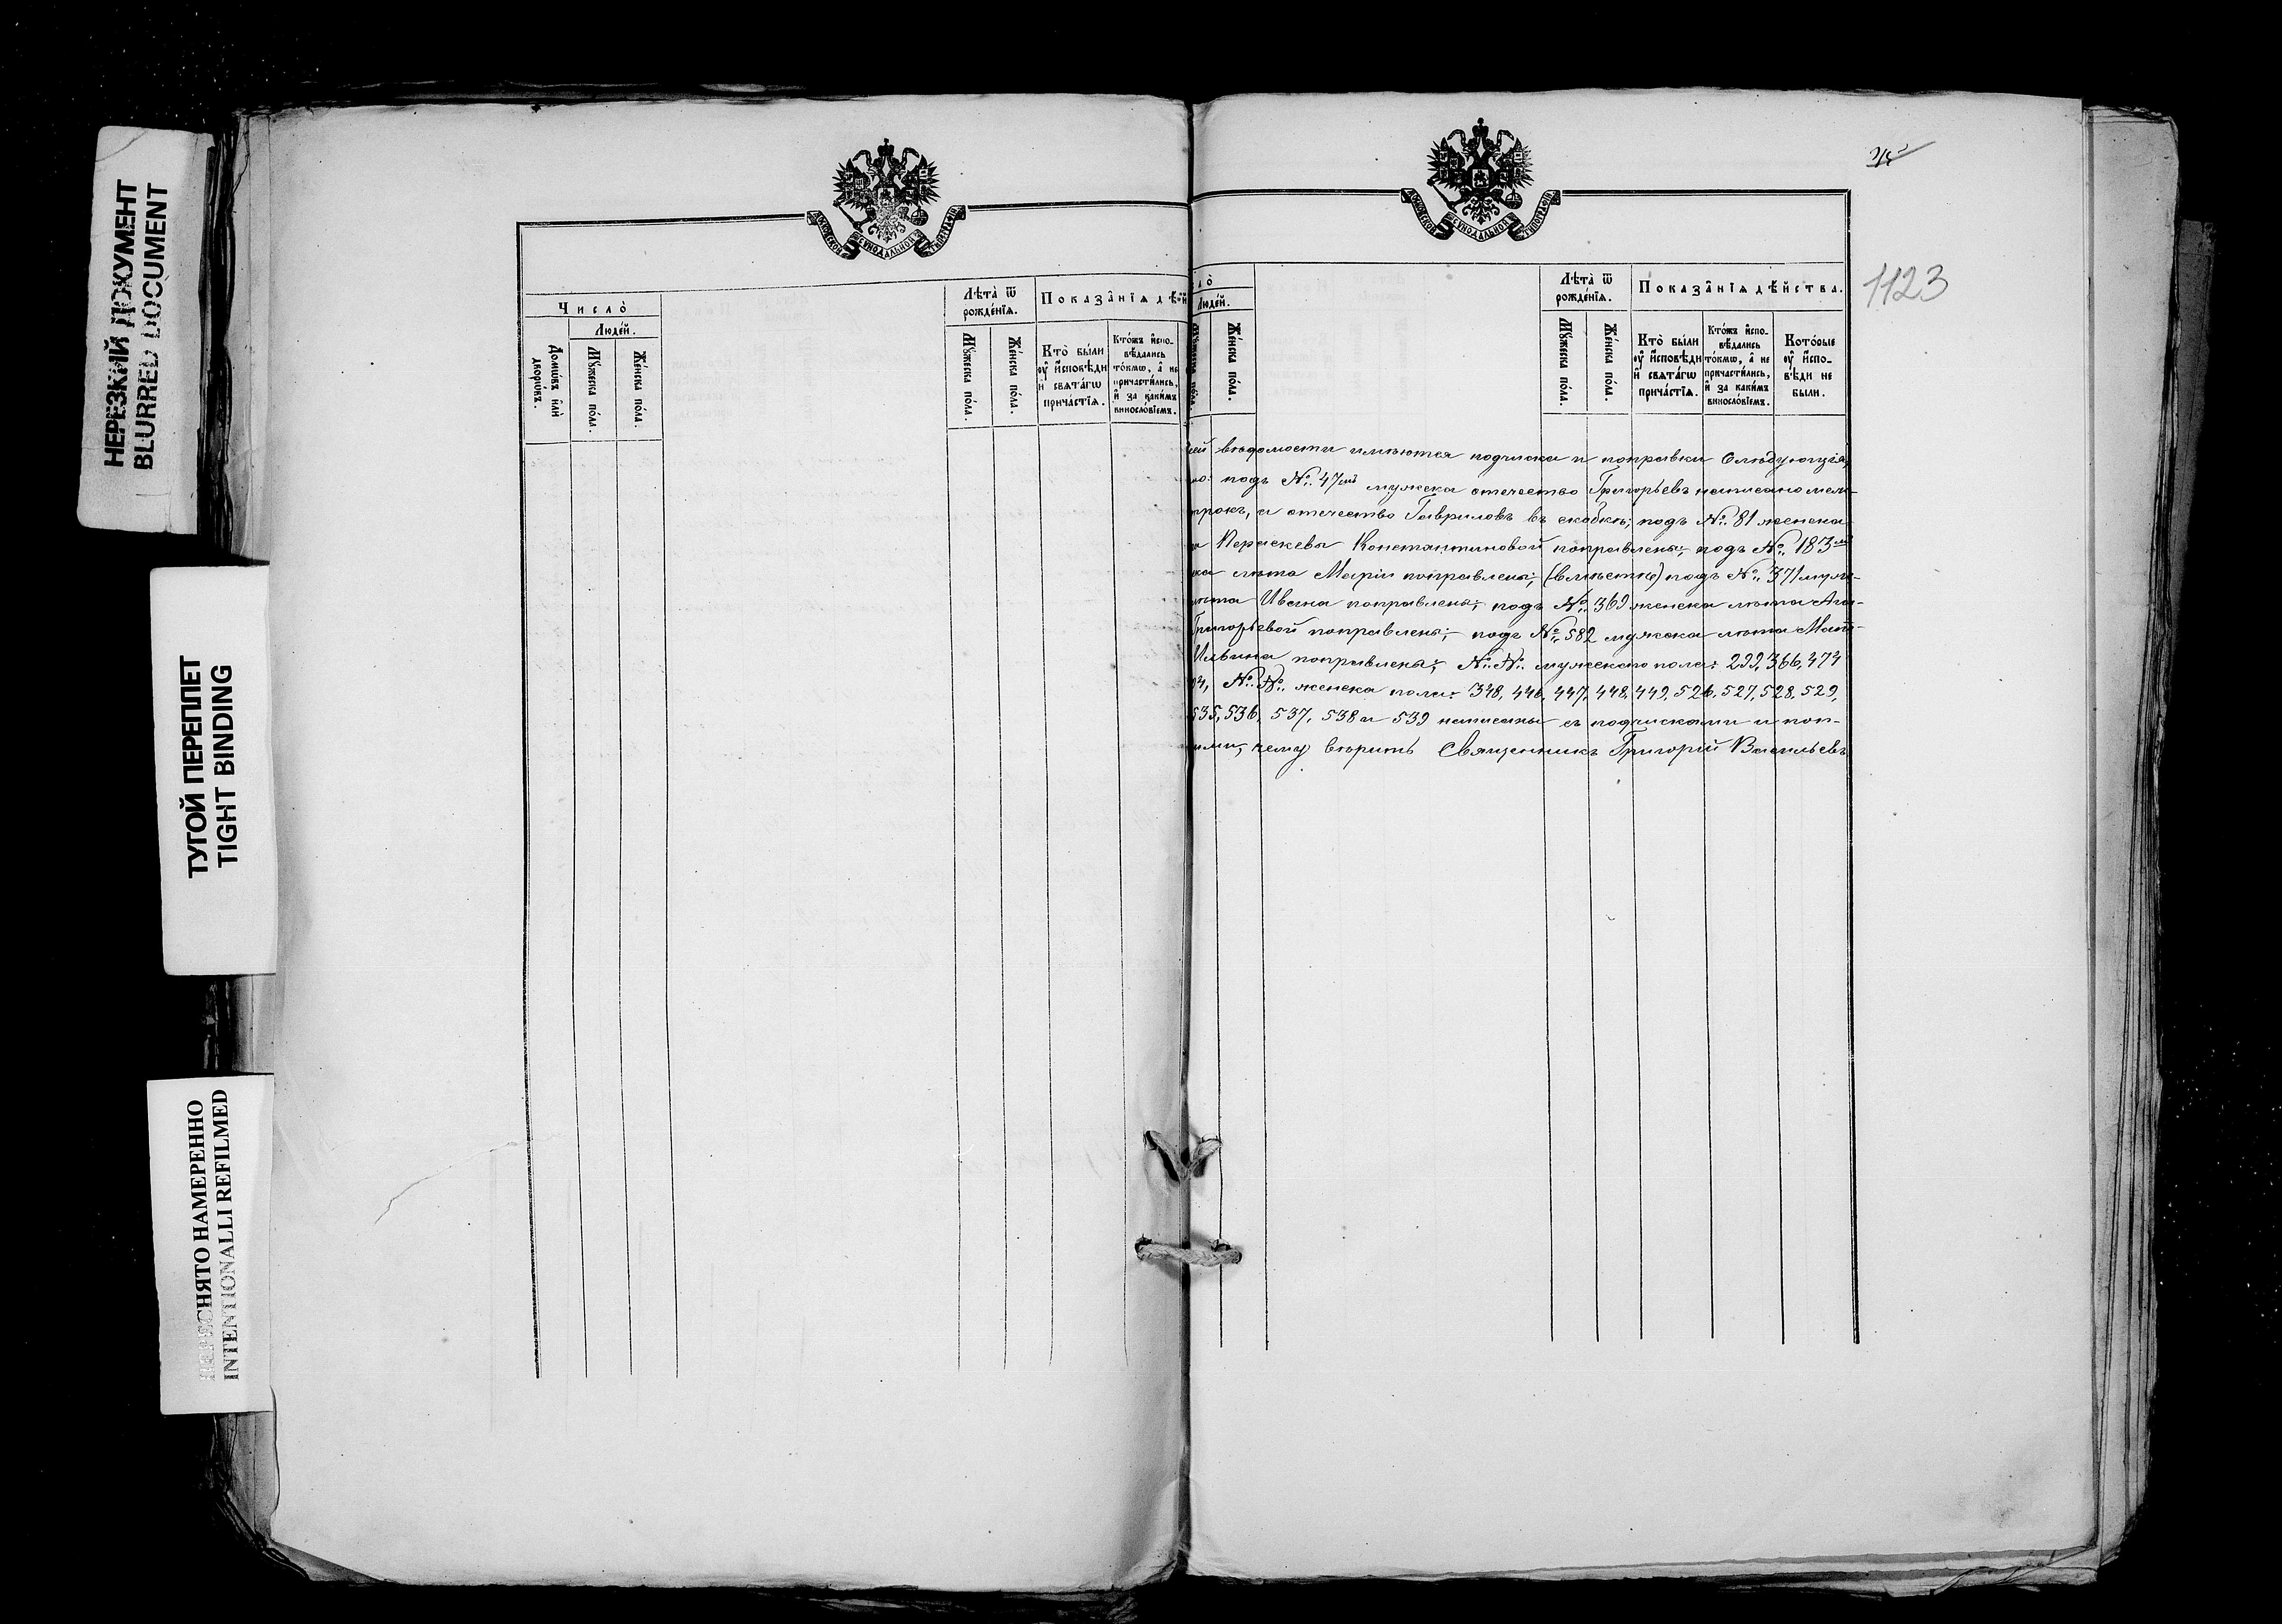 НЕРЕЗКИЙ ДОКУМЕНТ
BLURRED DOCUMENT
ТУГОЙ ПЕРЕПЛЕТ
TIGHT BINDING
ПЕРЕСНЯТО НАМЕРЕННО
INTENTIONALLI REFILMED
МОСКОВСКОЙ СѴНОДАЛЬНОЙ ТИПОГРАФІИ.
Число̀
Люде́й.
Домѡ́въ и҆лѝ дворѡ́въ.
Мꙋ́жеска по́ла.
Же́нска по́ла.
Лѣ́та ѿ рожде́нїѧ.
Мꙋ́жеска по́ла.
Же́нска по́ла.
Показа̑нїѧ дѣ́й
Кто̀ бы́ли ᲂу҆ и҆́сповѣди и҆ свѧта́гѡ прича́стїѧ.
Кто́жъ и҆спо-
вѣ́дались
то́кмѡ, а҆ не
причасти́лись,
и҆ за каки́мъ
винослові́емъ.
МОСКОВСКОЙ СѴНОДАЛЬНОЙ ТИПОГРАФІИ.
1123
ло̀
Люде́й.
Же́нска по́ла.
Лѣ́та ѿ рожде́нїѧ.
Мꙋ́жеска по́ла.
Же́нска по́ла.
Показа̑нїѧ дѣ́йства.
Кто̀ бы́ли ᲂу҆ и҆́сповѣди и҆ свѧта́гѡ прича́стїѧ.
Кто́жъ и҆спо-
вѣ́дались
то́кмѡ, а҆ не
причасти́лись,
и҆ за каки́мъ
винослові́емъ.
Кото́рые ᲂу҆ и҆́спо-
вѣди не
бы́ли.
сей вѣдомости имѣются подчиска и поправки слѣдующія,
но: подъ №. 47мъ мужеска отечество Григорьевъ написано меж-
трокъ, а отечество Гавриловъ въ скобкѣ; подъ №. 81 женска
Пераскевы Константиновой поправлены; подъ №. 183мъ
ка лѣта Маріи поправлены; (вмѣстѣ) подъ №. 371 муж-
лѣта Ивана поправлены; подъ №. 369 женска лѣта Ага-
Григорьевой поправлены; подъ № 582 мужеска лѣта Матѳ-
Ильина поправлены; №.№. мужескаго пола: 299, 366, 474
№.№. женска пола: 348, 446, 447, 448, 449, 526, 527, 528, 529,
535, 536, 537, 538 и 539 написаны съ подчисками и поп-
ими, чему вѣритъ Священникъ Григорій Васильевъ